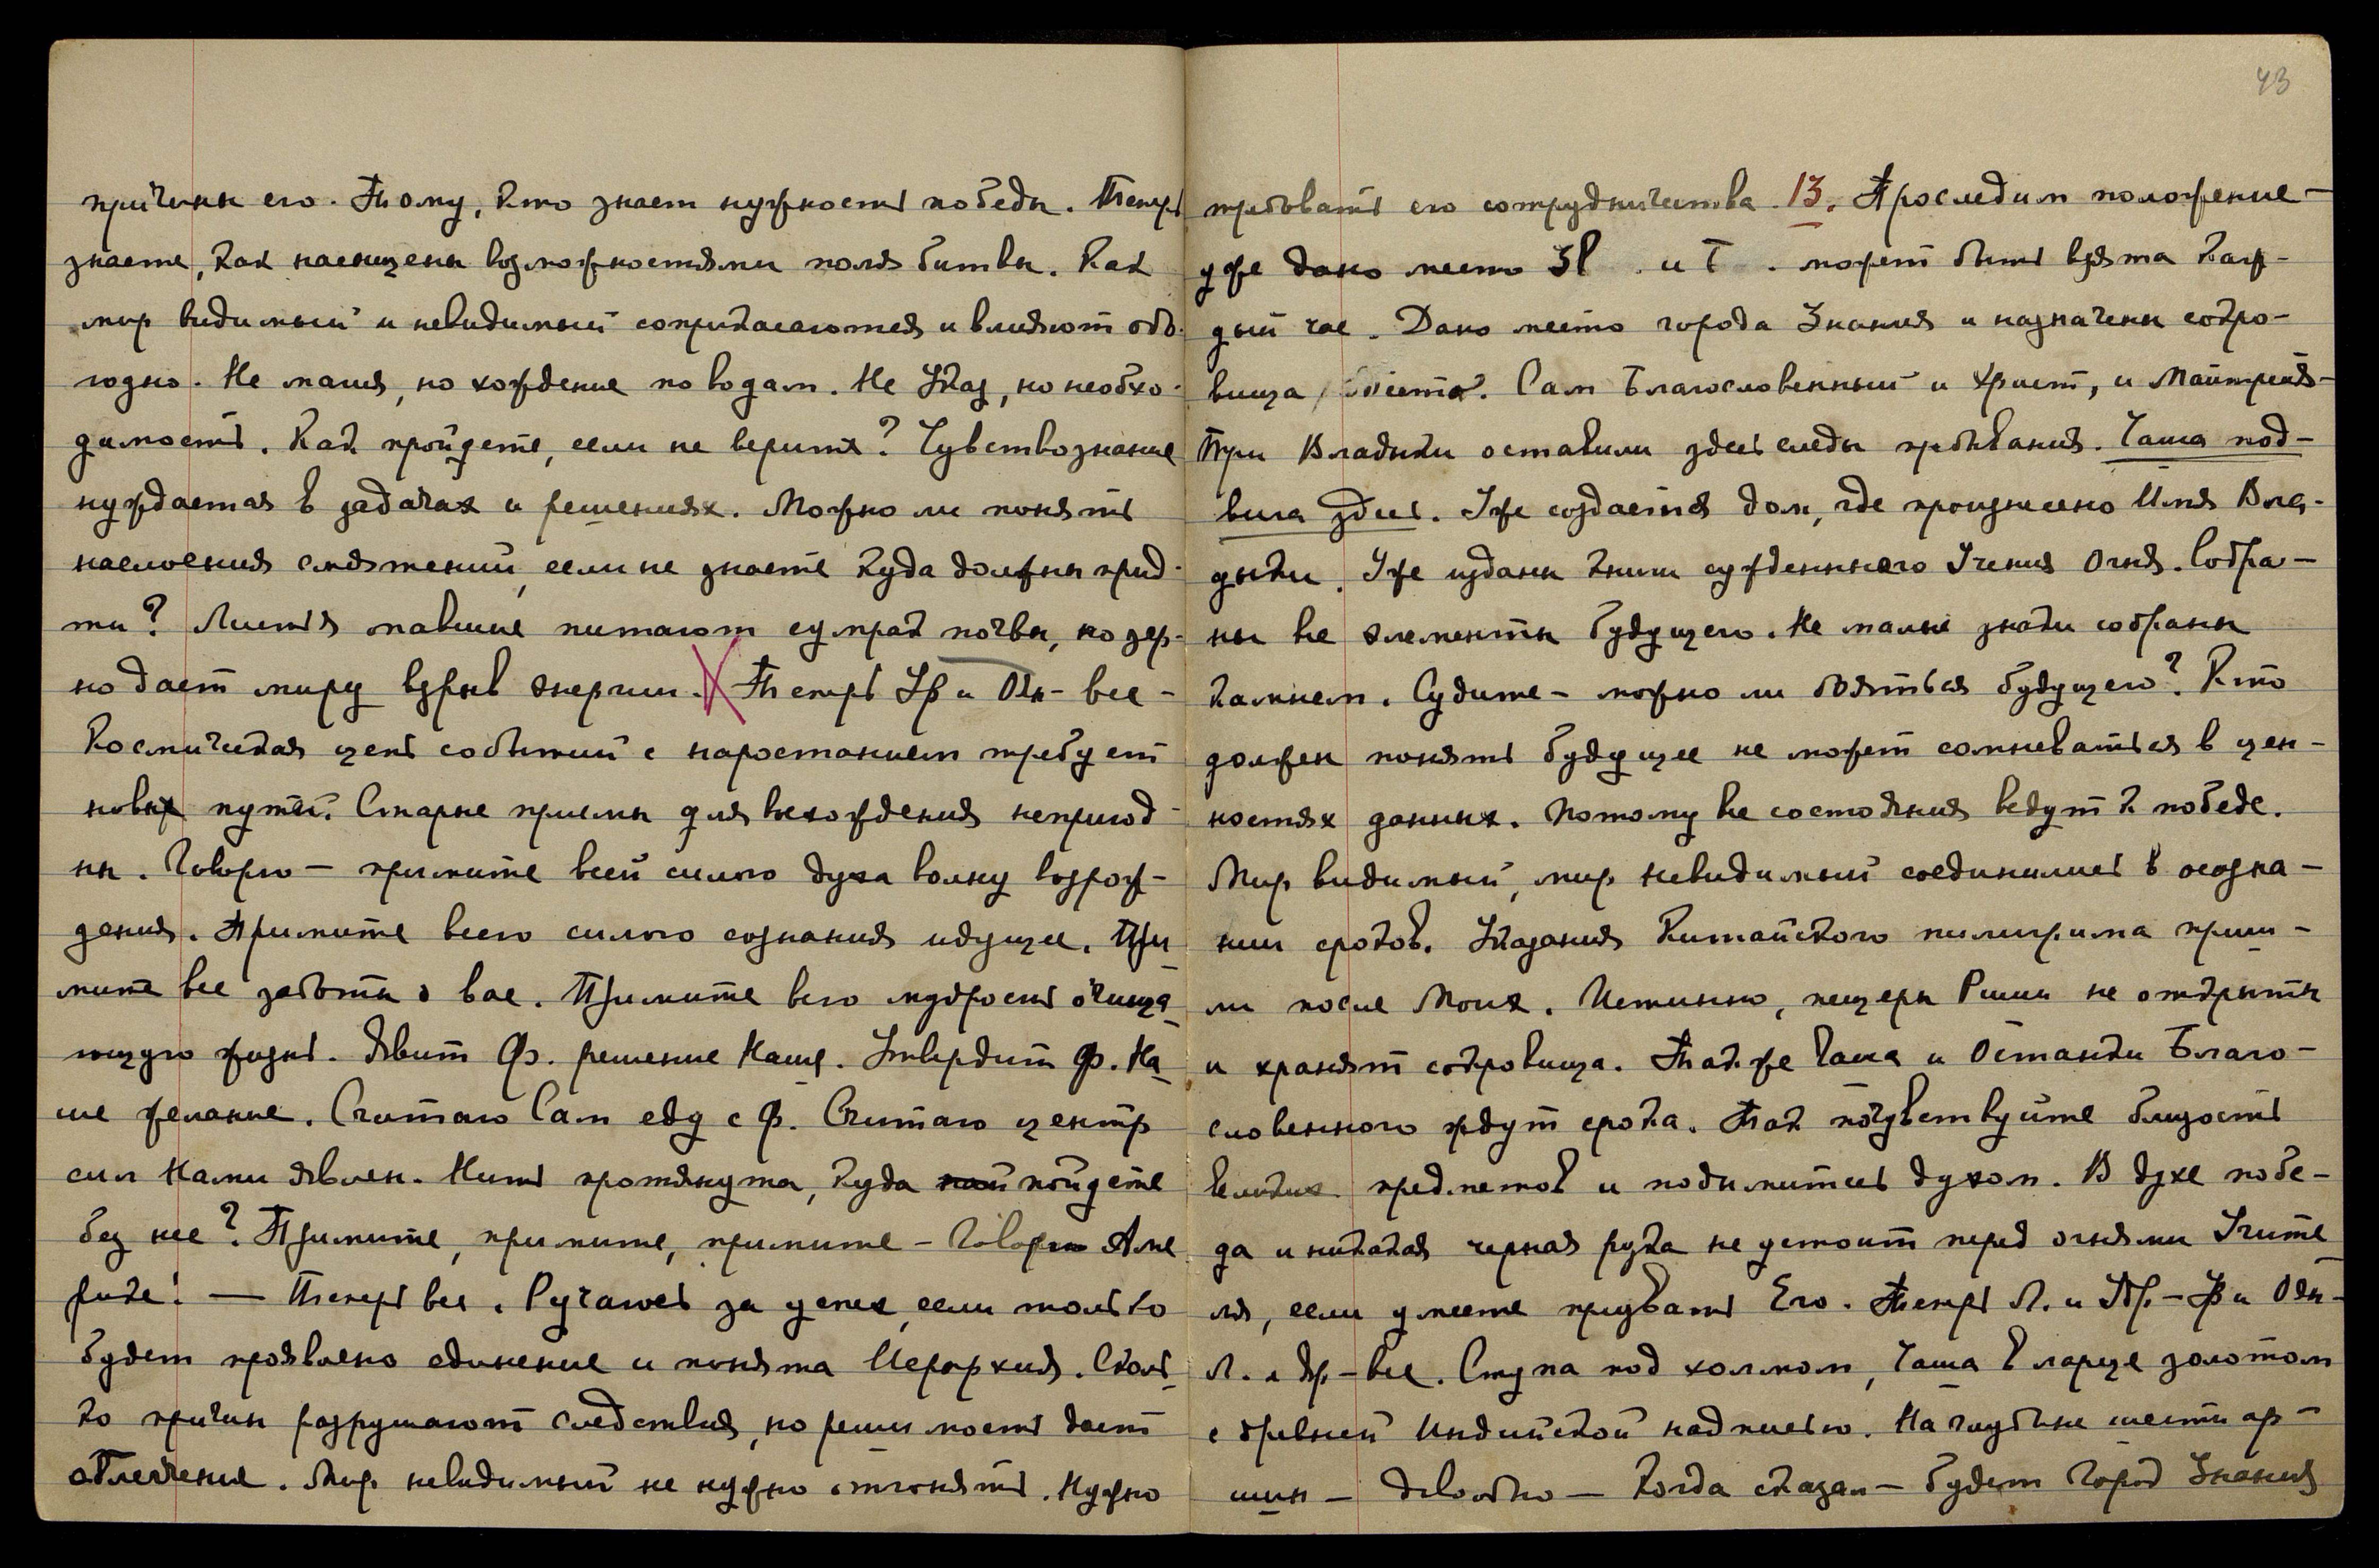 причины его. Тому, кто знает нужность победы. Теперь
знаете, как насыщены возможностями поля битвы. Как
мир видимый и невидимый соприкасаются и влияют обо-
юдно. Не магия, но хождение по водам. Не Указ, но необхо-
димость. Как пройдете, если не верите? Чувствознание
нуждается в задачах и решениях. Можно ли понять
наслоения смятений, если не знаете куда должны прид-
ти? Листья павшие питают сумрак почвы, но зер-
но дает миру взрыв энергии. Теперь Ур и Оян - все -
Космическая цепь событий с наростанием требует
новых путей. Старые приемы для восхождения непригод-
ны. Говорю — примите всей силою духа волну возрож-
дения. Примите всею силою сознания идущее. При
мите все заботы о вас. Примите всю мудрость очища
ющую жизнь. Явит Ф. решение Наше. Утвердит Ф. На
ше желание. Считаю Сам еду с Ф. Считаю центр
сил Нами явлен. Нить протянута, куда пойдете
без нее? Примите, примите, примите - Говорю
— Теперь все. Ручаюсь за успех, если только
будет проявлено единение и понята Иерархия. Сколь
ко причин разрушают следствия, но решимость дает
облегчение. Мир невидимый не нужно отгонять. Нужно
43
требовать его сотрудничества. 13. Проследим положение —
уже дано место Зв. и Т. может быть взята каж-
дый час. Дано место города Знания и назначены сокро-
вища места. Сам Благословенный и Христ, и Майтрейя -
Три Владыки оставили здесь следы пребывания. Чаша под-
вига здесь. Уже создается дом, где произнесено Имя Вла-
дыки. Уже изданы книги сужденного Учения Огня. Собра-
ны все элементы будущего. Не малые знаки собраны
Камнем. Судите - можно ли бояться будущего? Кто
должен понять будущее не может сомневаться в цен-
ностях данных. Потому все состояния ведут к победе.
Мир видимый, мир невидимый соединились в осозна-
нии сроков. Указания Китайского пилигрима приш-
ли после Моих. Истинно, пещеры Риши не открыты
и хранят сокровища. Также Чаша и Останки Благо-
словенного ждут срока. Так почувствуйте близость
великих предметов и подымитесь духом. В духе побе-
да и никакая черная рука не устоит перед огнями Учите
ля, если умеете призвать Его. Теперь Л. и Яр. - Ур и Оян -
Л. и Яр. - все. Ступа под холмом, Чаша в ларце золотом
с древней Индийской надписью. На глубине шести ар-
шин — довольно — Когда сказал — будет Город Знания